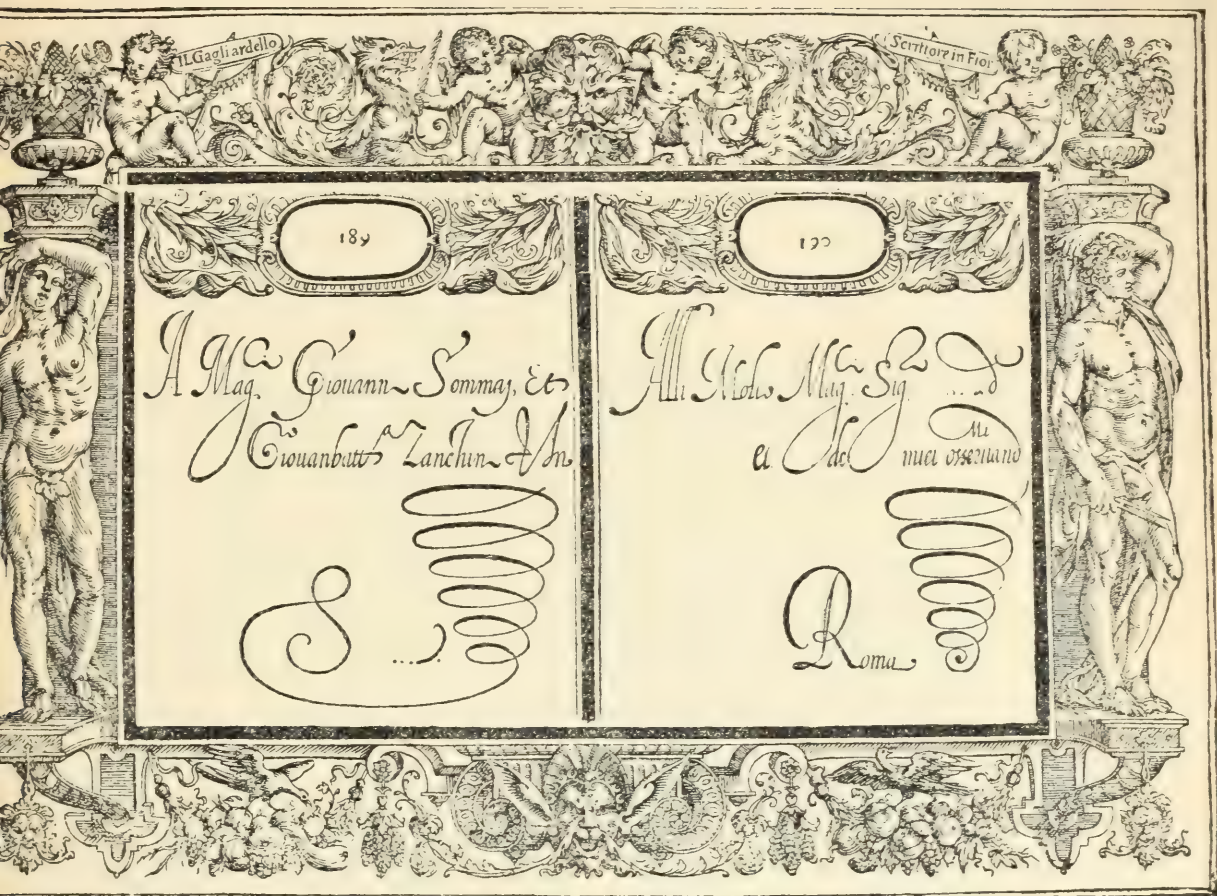 IL Gagliardello
Scrittore in Fior
189
A Mag.ci Giouann Sommaj, Et
Giouanbatt.a Zanchin
S ....
Alli Molto Mag.ci Sig.ri .... d
et de miei osseruand
Roma